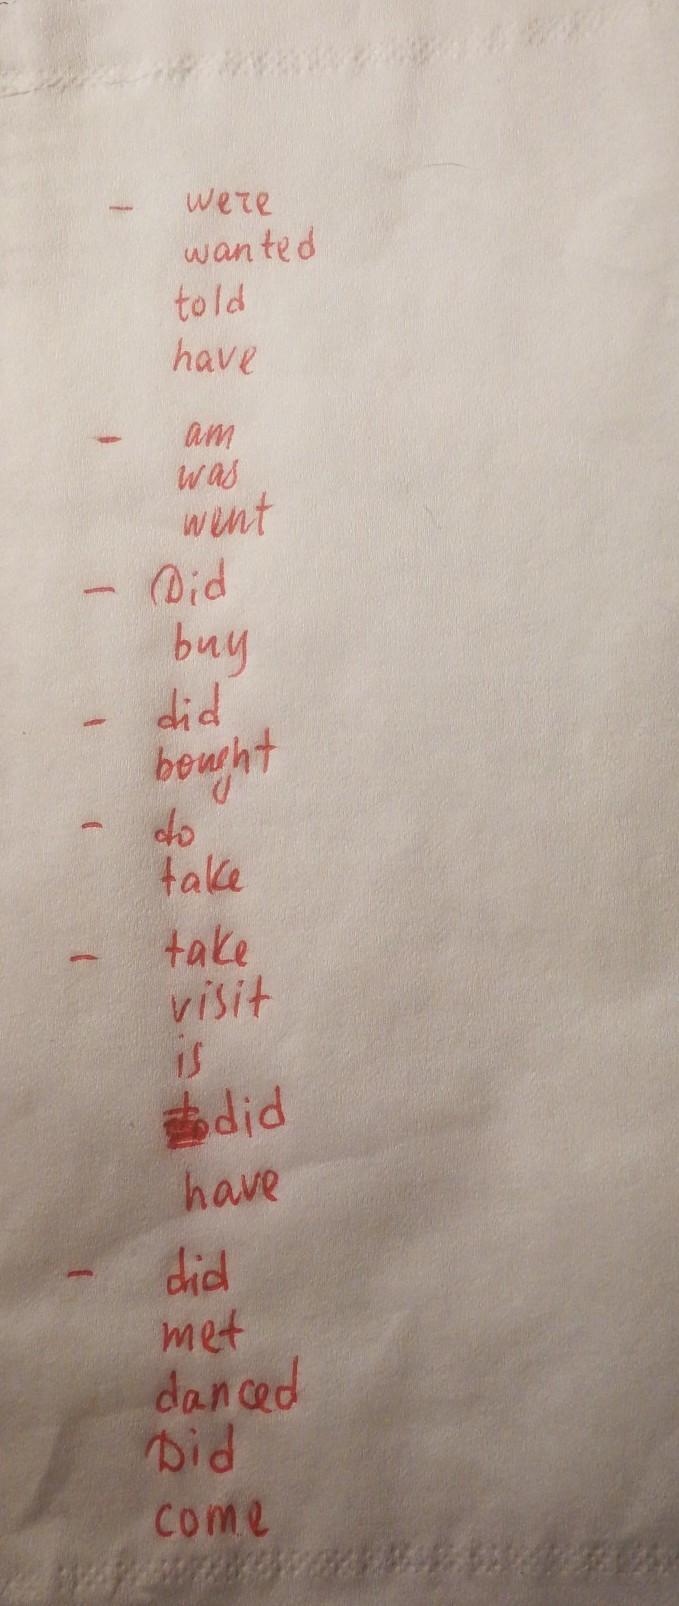 - were
wanted
told
have
- am
was
went
- Did
buy
- did
bought
- do
take
- take
visit
is
did
have
- did
met
danced
Did
come